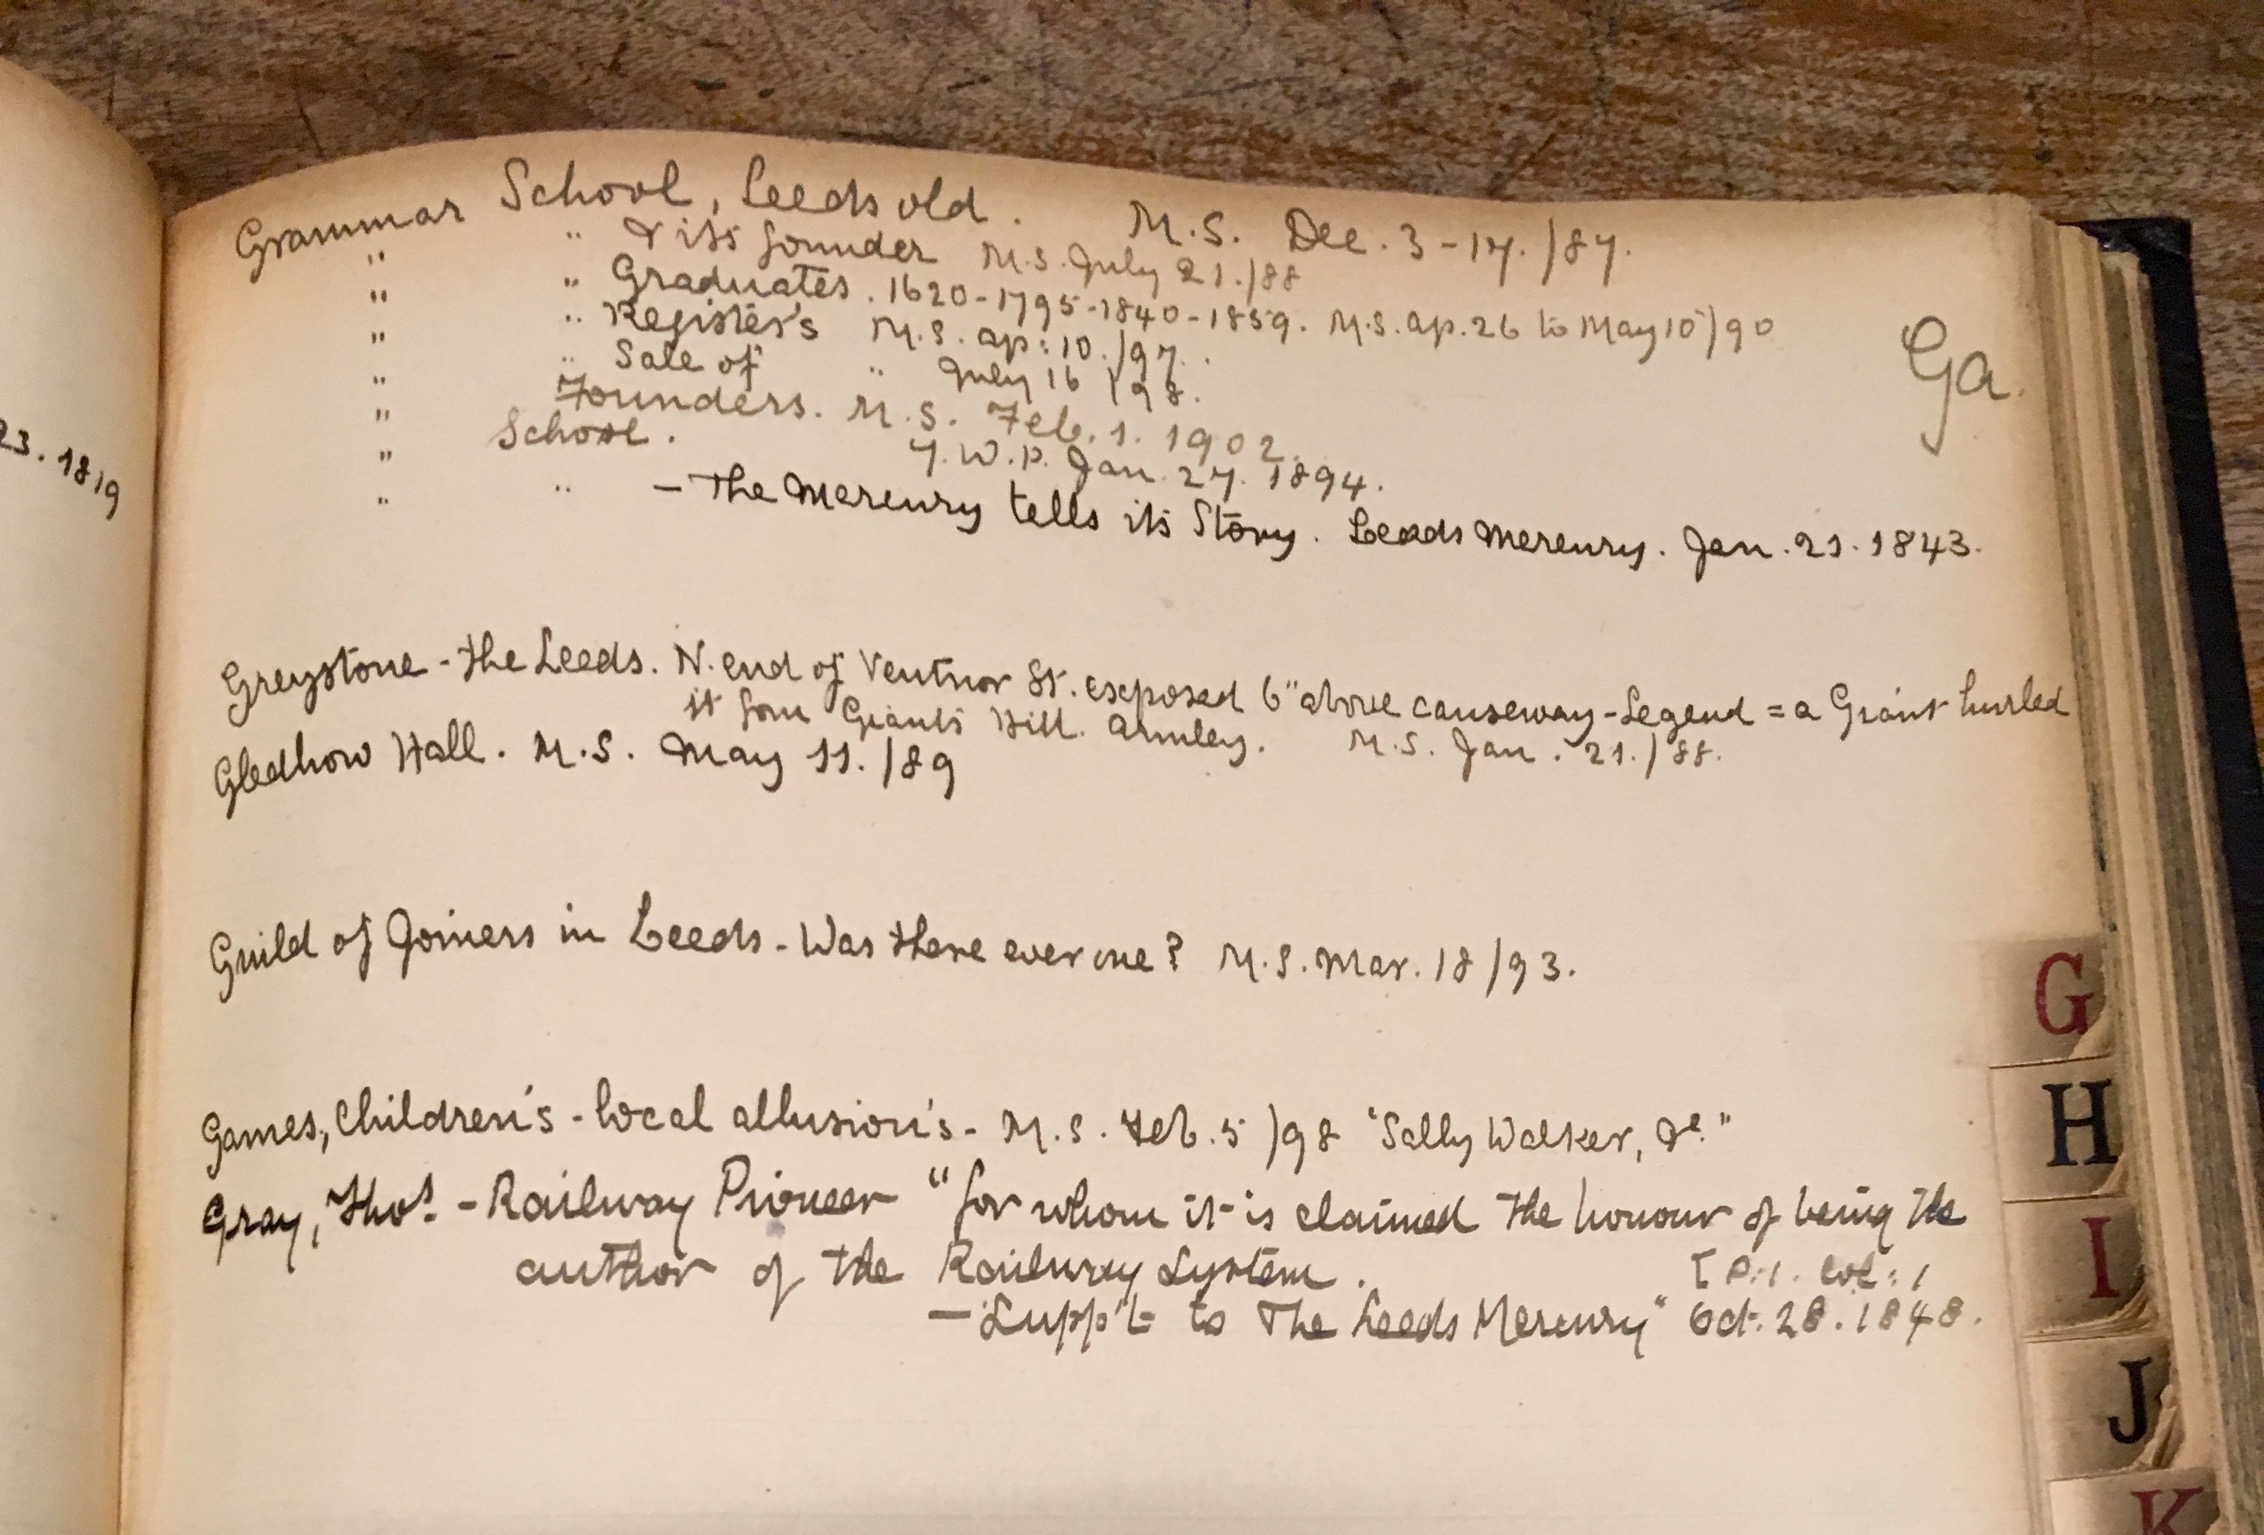 Grammar School, Leeds old. M.S. Dec. 3-17./87.
" " & its founder M.S. July 21./88
" " Graduates. 1620-1795-1840-1859. M.S. ap. 26 to May 10/90
" " Register's M.S. ap: 10./97.
" " Sale of " July 16/98.
" Founders. M.S. Feb. 1. 1902.
" School. Y.W.P. Jan. 27. 1894.
" " - The Mercury tells its Story. Leeds Mercury. Jan. 21. 1843.
Ga.
23. 1819
Greystone - the Leeds. N. end of Ventnor St. exposed 6" above causeway - Legend = a Giant hurled
it from Giants Hill. Armley. M.S. Jan. 21./88.
Gledhow Hall. M.S. May 11./89
Guild of Joiners in Leeds - Was there ever one? M.S. Mar. 18/93.
Games, Children's - local allusion's - M.S. Feb. 5/98 "Sally Walker, &c."
Gray, Thos. - Railway Pioneer "for whom it is claimed the honour of being the
author of the Railway System.
[P.1. Col: 1
- Supp't to The Leeds Mercury" Oct. 28. 1848.
G
H
I
J
K